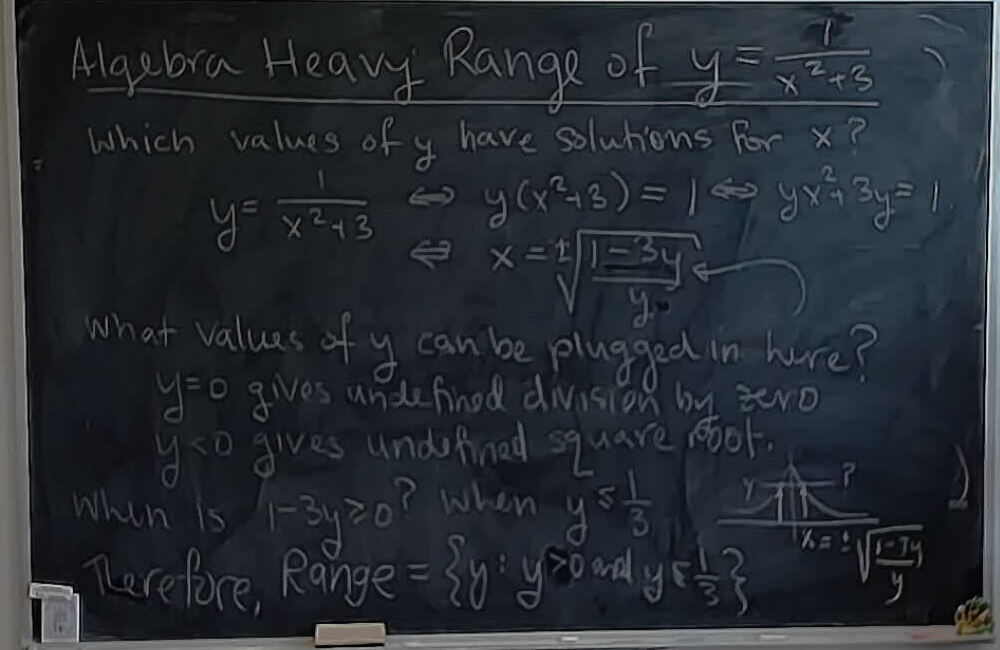 Algebra Heavy Range of y = 1/(x²+3)
Which values of y have solutions for x?
y = 1/(x²+3) ⇔ y(x²+3) = 1 ⇔ yx²+3y = 1.
⇔ x = ±√((1-3y)/y)
What values of y can be plugged in here?
y=0 gives undefined division by zero
y<0 gives undefined square root.
When is 1-3y≥0? When y ≤ 1/3
y ?
x = ±√((1-3y)/y)
Therefore, Range = {y : y>0 and y ≤ 1/3}